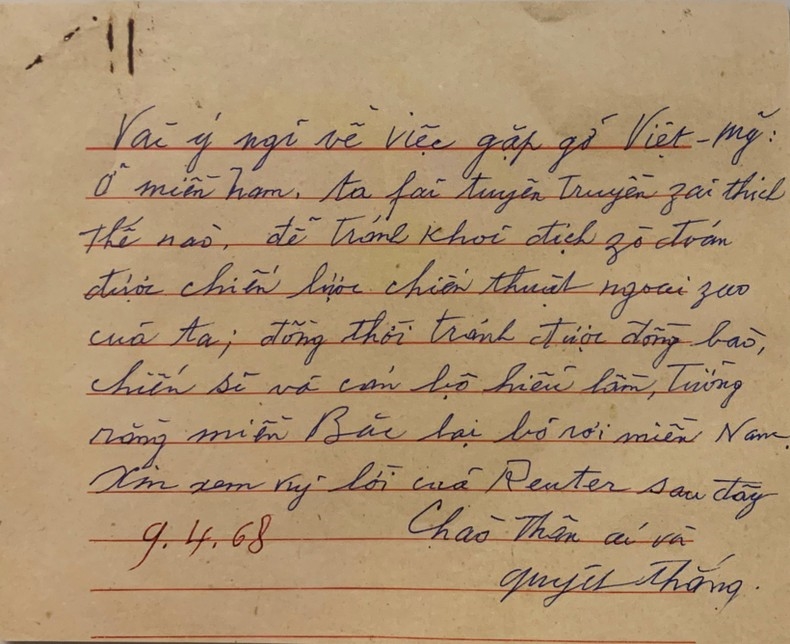 Vài ý ngĩ về việc gặp gỡ Việt - Mỹ:
Ở miền Nam. ta fải tuyên truyền zải thích
thế nào, để tránh khỏi địch zò đoán
được chiến lược chiến thuật ngoại zao
của ta; đồng thời tránh được đồng bào,
chiến sĩ và cán bộ hiểu lầm, tưởng
rằng miền Bắc lại bỏ rơi miền Nam.
Xin xem kỹ lời của Reuter sau đây
9.4.68 Chào thân ái và
quyết thắng.